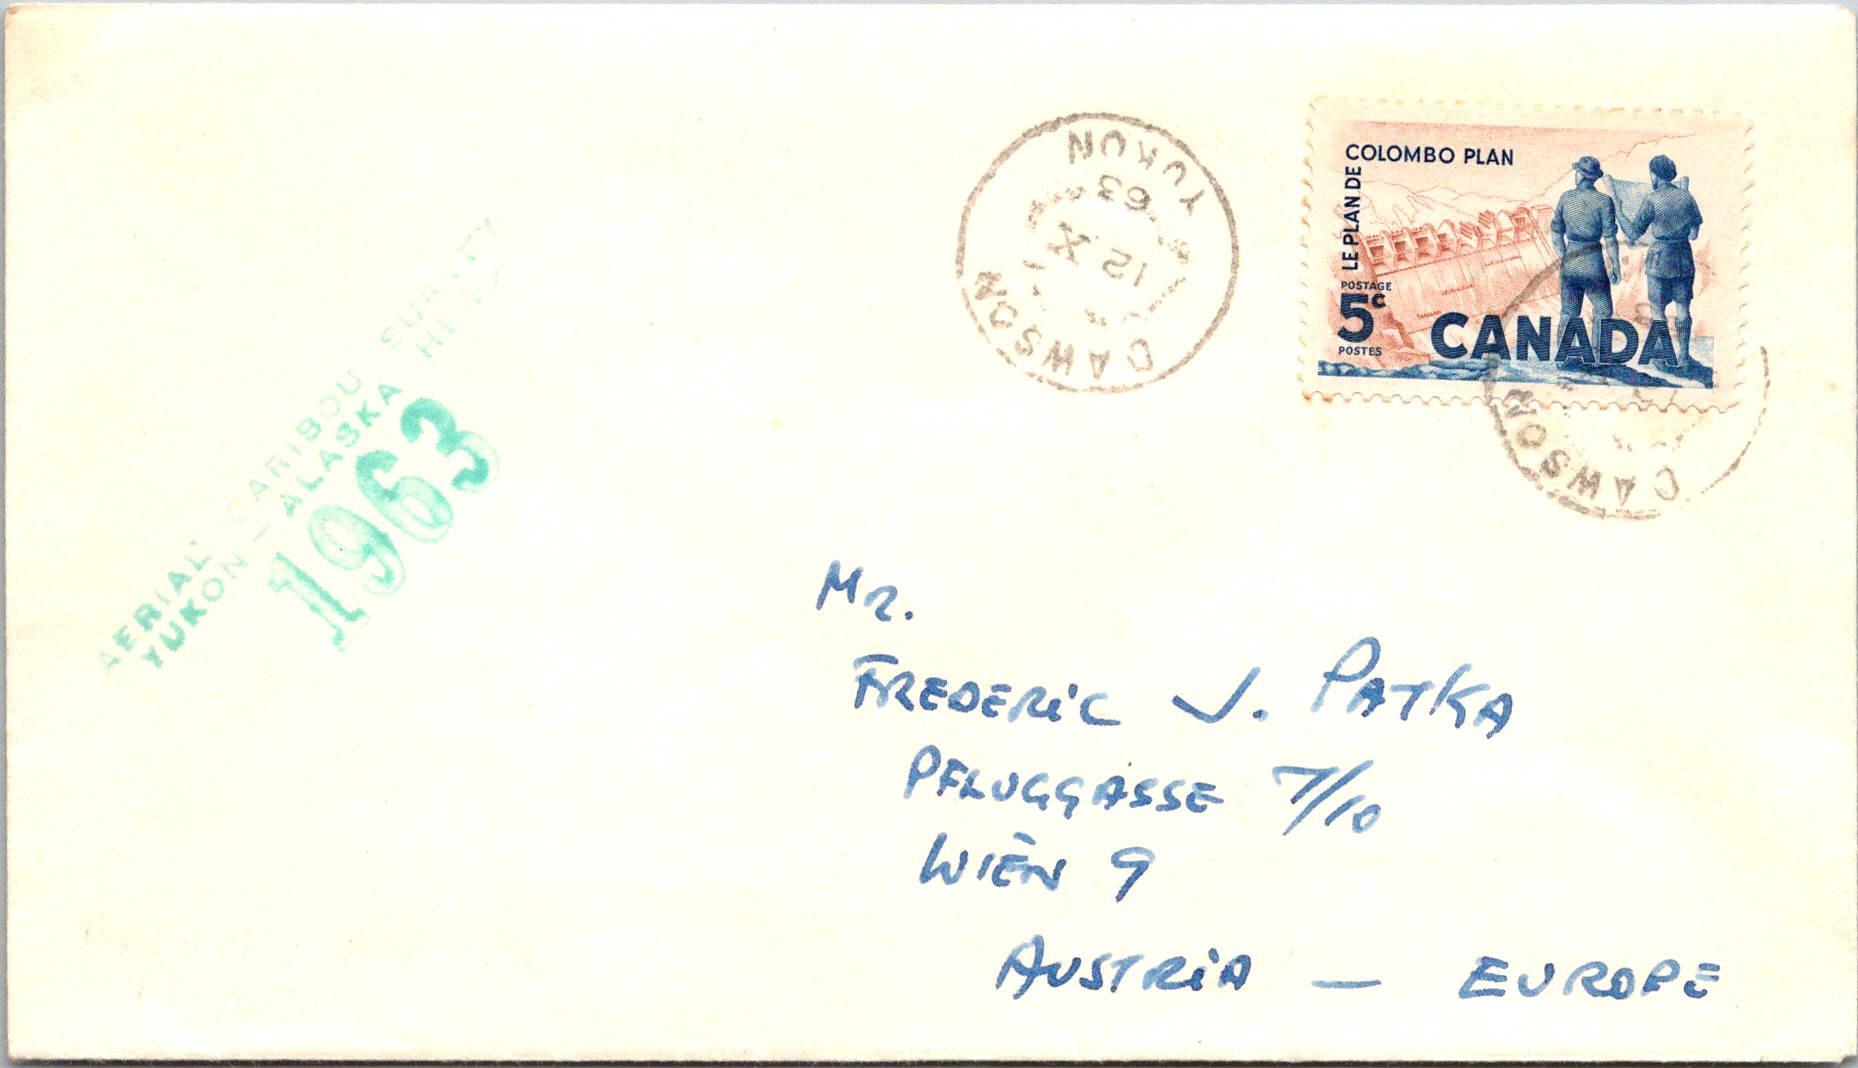 AERIAL CARIBOU SURVEY
YUKON — ALASKA HERD
1963
DAWSON
12 X
63
YUKON
COLOMBO PLAN
LE PLAN DE
POSTAGE
5c
POSTES
CANADA
DAWSON
Mr.
FREDERiC J. PATKA
PFLUGGASSE 7/10
WIEN 9
AUSTRiA — EUROPE